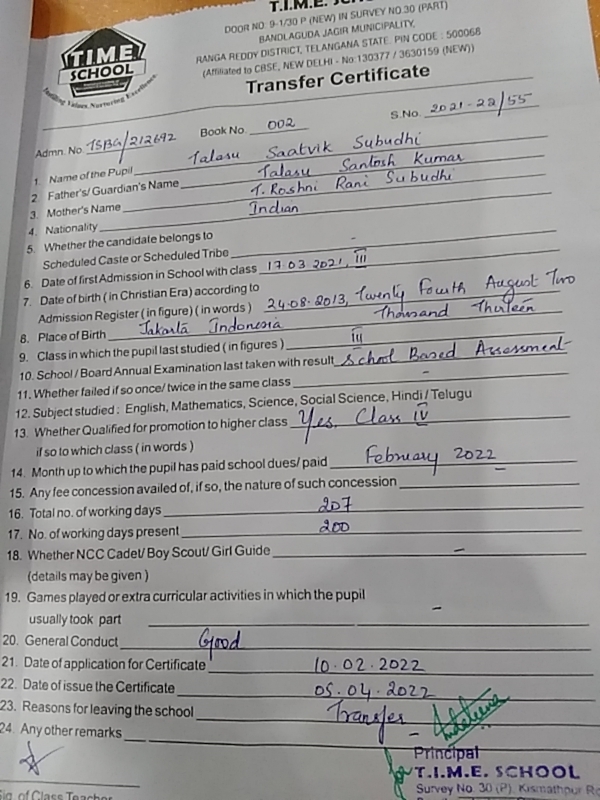 T.I.M.E. SCHOOL
DOOR NO. 9-1/30 P (NEW) IN SURVEY NO.30 (PART)
BANDLAGUDA JAGIR MUNICIPALITY,
RANGA REDDY DISTRICT, TELANGANA STATE. PIN CODE : 500068
(Affiliated to CBSE, NEW DELHI - No:130377 / 3630159 (NEW))
T.I.M.E.
SCHOOL
Transfer Certificate
Admn. No TSBG/212692 Book No. 002 S.No. 2021-22/55
1. Name of the Pupil Talasu Saatvik Subudhi
2. Father's/ Guardian's Name Talasu Santosh Kumar
3. Mother's Name T. Roshni Rani Subudhi
4. Nationality Indian
5. Whether the candidate belongs to
Scheduled Caste or Scheduled Tribe -
6. Date of first Admission in School with class 17.03.2021, III
7. Date of birth ( in Christian Era) according to
Admission Register ( in figure) ( in words ) 24.08.2013, Twenty Fourth August Two
Thousand Thirteen
8. Place of Birth Jakarta Indonesia
9. Class in which the pupil last studied ( in figures ) III
10. School / Board Annual Examination last taken with result School Based Assessment
11. Whether failed if so once/ twice in the same class -
12. Subject studied : English, Mathematics, Science, Social Science, Hindi / Telugu
13. Whether Qualified for promotion to higher class Yes, Class IV
if so to which class ( in words )
14. Month up to which the pupil has paid school dues/ paid February 2022
15. Any fee concession availed of, if so, the nature of such concession -
16. Total no. of working days 207
17. No. of working days present 200
18. Whether NCC Cadet/ Boy Scout/ Girl Guide -
(details may be given )
19. Games played or extra curricular activities in which the pupil
usually took part -
20. General Conduct Good
21. Date of application for Certificate 10.02.2022
22. Date of issue the Certificate 05.04.2022
23. Reasons for leaving the school Transfer
24. Any other remarks -
Principal
for T.I.M.E. SCHOOL
Survey No. 30 (P), Kismathpur
Sig. of Class Teacher